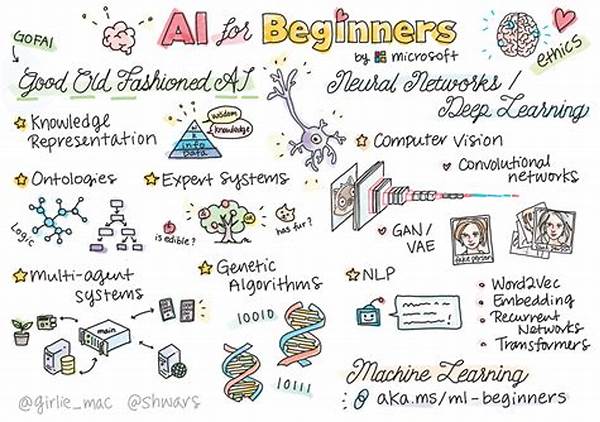 AI for Beginners
by microsoft
ethics
GOFAI
Good Old Fashioned AI
Knowledge
Representation
wisdom
knowledge
info
Data
Ontologies
Logic
Expert Systems
is edible?
has fur?
Multi-agent
systems
main
Genetic
Algorithms
10010
10111
Neural Networks /
Deep Learning
Computer Vision
Convolutional
networks
GAN/
VAE
fake person
NLP
Word2Vec
Embedding
Recurrent
Networks
Transformers
Machine Learning
aka.ms/ml-beginners
@girlie_mac @shwars